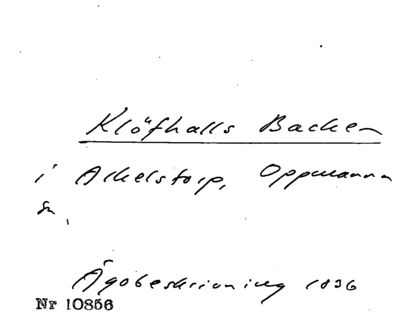 Klöfhalls Backen
i Arkelstorp, Oppmanna
sn.
Ägobeskrivning 1836
Nr 10856